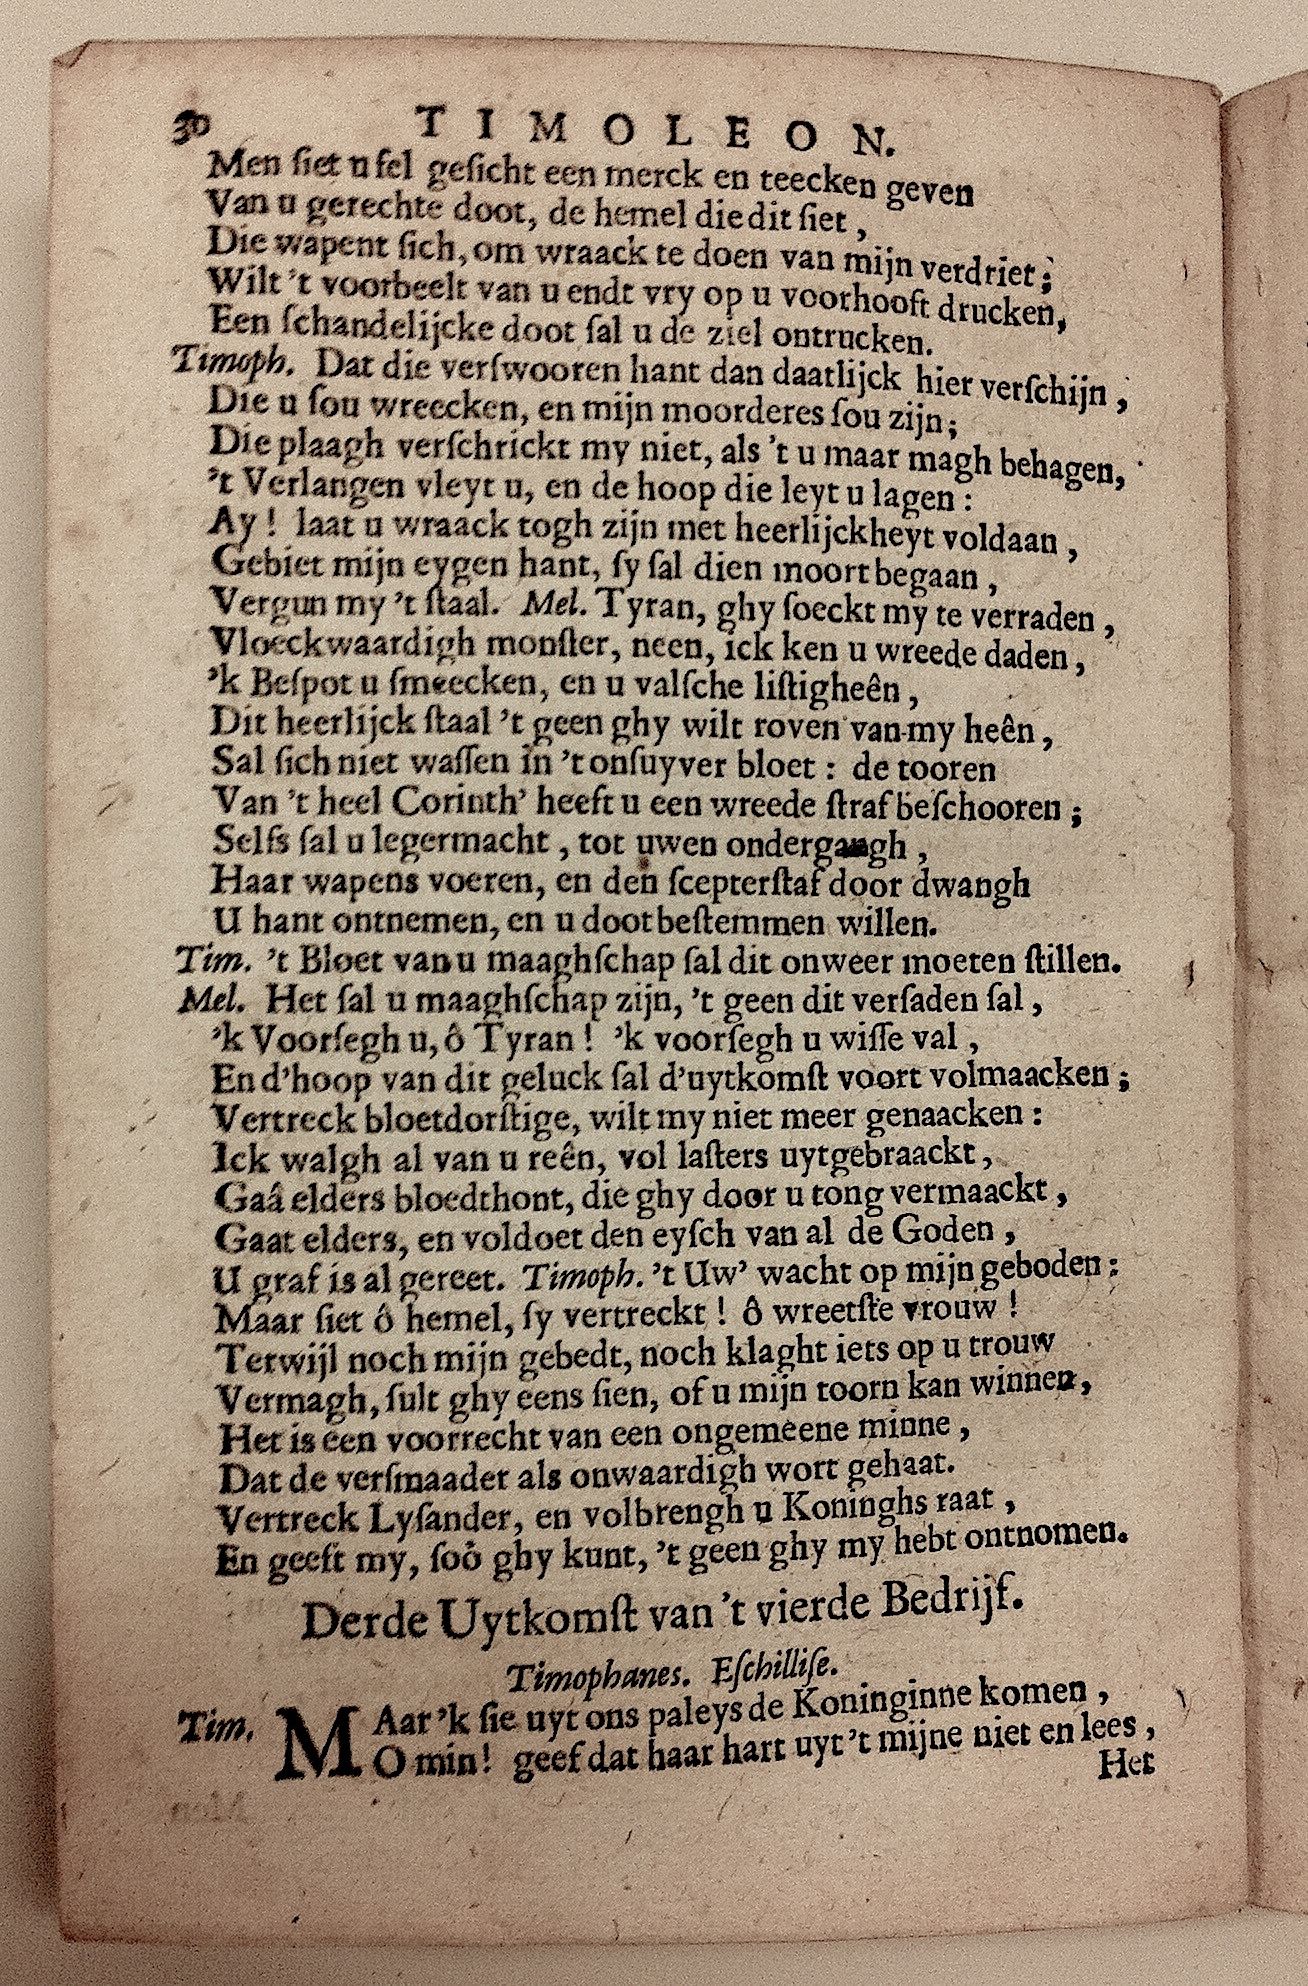 30 TIMOLEON.
Men ſiet u fel geſicht een merck en teecken geven
Van u gerechte doot, de hemel die dit ſiet,
Die wapent ſich, om wraack te doen van mijn verdriet;
Wilt 't voorbeelt van u endt vry op u voorhooft drucken,
Een ſchandelijcke doot ſal u de ziel ontrucken.
Timoph. Dat die verſwooren hant dan daatlijck hier verſchijn,
Die u ſou wreecken, en mijn moorderes ſou zijn;
Die plaagh verſchrickt my niet, als 't u maar magh behagen,
't Verlangen vleyt u, en de hoop die leyt u lagen:
Ay! laat u wraack togh zijn met heerlijckheyt voldaan,
Gebiet mijn eygen hant, ſy ſal dien moort begaan,
Vergun my 't ſtaal. Mel. Tyran, ghy ſoeckt my te verraden,
Vloeckwaardigh monſter, neen, ick ken u wreede daden,
'k Beſpot u ſmeecken, en u valſche liſtigheên,
Dit heerlijck ſtaal 't geen ghy wilt roven van my heên,
Sal ſich niet waſſen in 't onſuyver bloet: de tooren
Van 't heel Corinth' heeft u een wreede ſtraf beſchooren;
Selfs ſal u legermacht, tot uwen ondergangh,
Haar wapens voeren, en den ſcepterſtaf door dwangh
U hant ontnemen, en u doot beſtemmen willen.
Tim. 't Bloet van u maaghſchap ſal dit onweer moeten ſtillen.
Mel. Het ſal u maaghſchap zijn, 't geen dit verſaden ſal,
'k Voorſegh u, ô Tyran! 'k voorſegh u wiſſe val,
En d'hoop van dit geluck ſal d'uytkomſt voort volmaacken;
Vertreck bloetdorſtige, wilt my niet meer genaacken:
Ick walgh al van u reên, vol laſters uytgebraackt,
Gaâ elders bloedthont, die ghy door u tong vermaackt,
Gaat elders, en voldoet den eyſch van al de Goden,
U graf is al gereet. Timoph. 't Uw' wacht op mijn geboden:
Maar ſiet ô hemel, ſy vertreckt! ô wreetſte vrouw!
Terwijl noch mijn gebedt, noch klaght iets op u trouw
Vermagh, ſult ghy eens ſien, of u mijn toorn kan winnen,
Het is een voorrecht van een ongemeene minne,
Dat de verſmaader als onwaardigh wort gehaat.
Vertreck Lyſander, en volbrengh u Koninghs raat,
En geeft my, ſoo ghy kunt, 't geen ghy my hebt ontnomen.
Derde Uytkomſt van 't vierde Bedrijf.
Timophanes. Eſchilliſe.
Tim. MAar 'k ſie uyt ons paleys de Koninginne komen,
O min! geef dat haar hart uyt 't mijne niet en lees,
Het